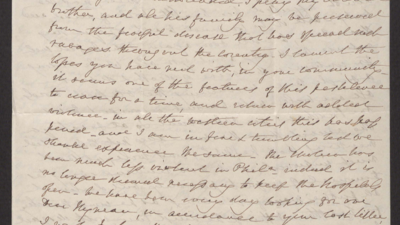 brother, and all his family may be preserved
from the fearful disease that has spread such
ravages throughout the country. I lament the
losses you have met with, in your community
it seems one of the features of this pestilence
to cease for a time and return with added
violence. in all the western cities this has
and I am in fear trembling lest we
should experience the same. the cholera has
been much less violent in Phila. indeed it is
no longer deemed necessary to keep the hospitals
open. We have been every day looking for our
dear in to your last letter